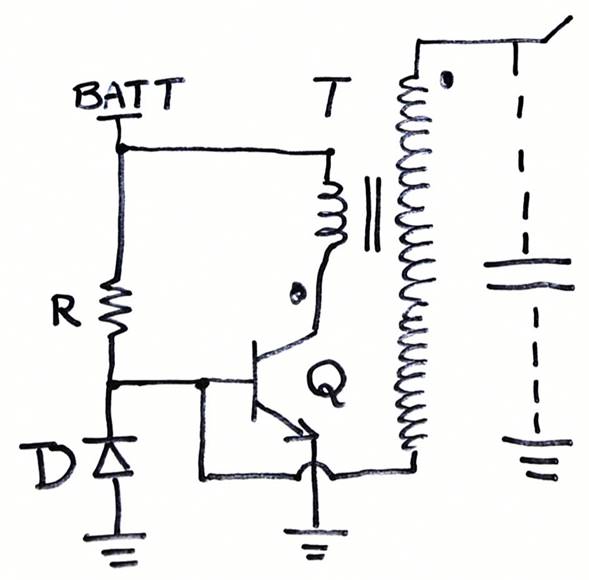 BATT
T
R
Q
D